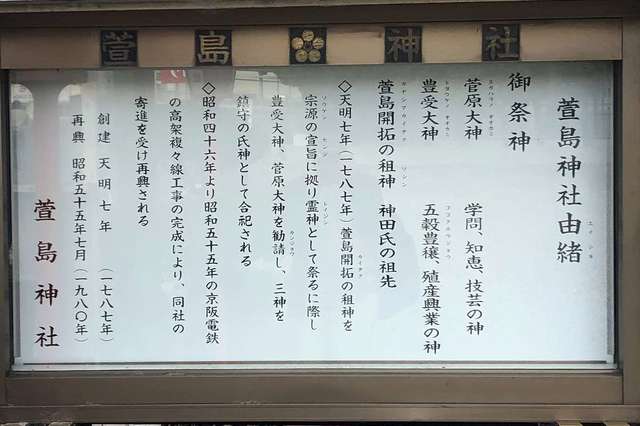 萱島神社
萱島神社由緒
御祭神
菅原大神 学問、知恵、技芸の神
豊受大神 五穀豊穣、殖産興業の神
萱島開拓の祖神 神田氏の祖先
◇天明七年(一七八七年)萱島開拓の祖神を
宗源の宣旨に拠り霊神として祭るに際し
豊受大神、菅原大神を勧請し、三神を
鎮守の氏神として合祀される
◇昭和四十六年より昭和五十五年の京阪電鉄
の高架複々線工事の完成により、同社の
寄進を受け再興される
創建 天明七年 (一七八七年)
再興 昭和五十五年七月 (一九八〇年)
萱島神社